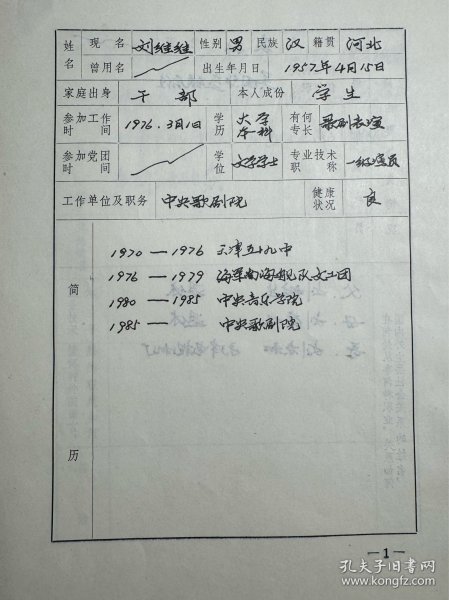 姓名 现名 刘继维 性别 男 民族 汉 籍贯 河北
曾用名 出生年月日 1957年4月15日
家庭出身 干部 本人成份 学生
参加工作时间 1976.3月1日 学历 大学本科 有何专长 歌剧表演
参加党团时间 学位 文学学士 专业技术职称 一级演员
工作单位及职务 中央歌剧院 健康状况 良
简历
1970—1976 天津五十九中
1976—1979 海军南海舰队文工团
1980—1985 中央音乐学院
1985— 中央歌剧院
—1—
孔夫子旧书网
www.kongfz.com